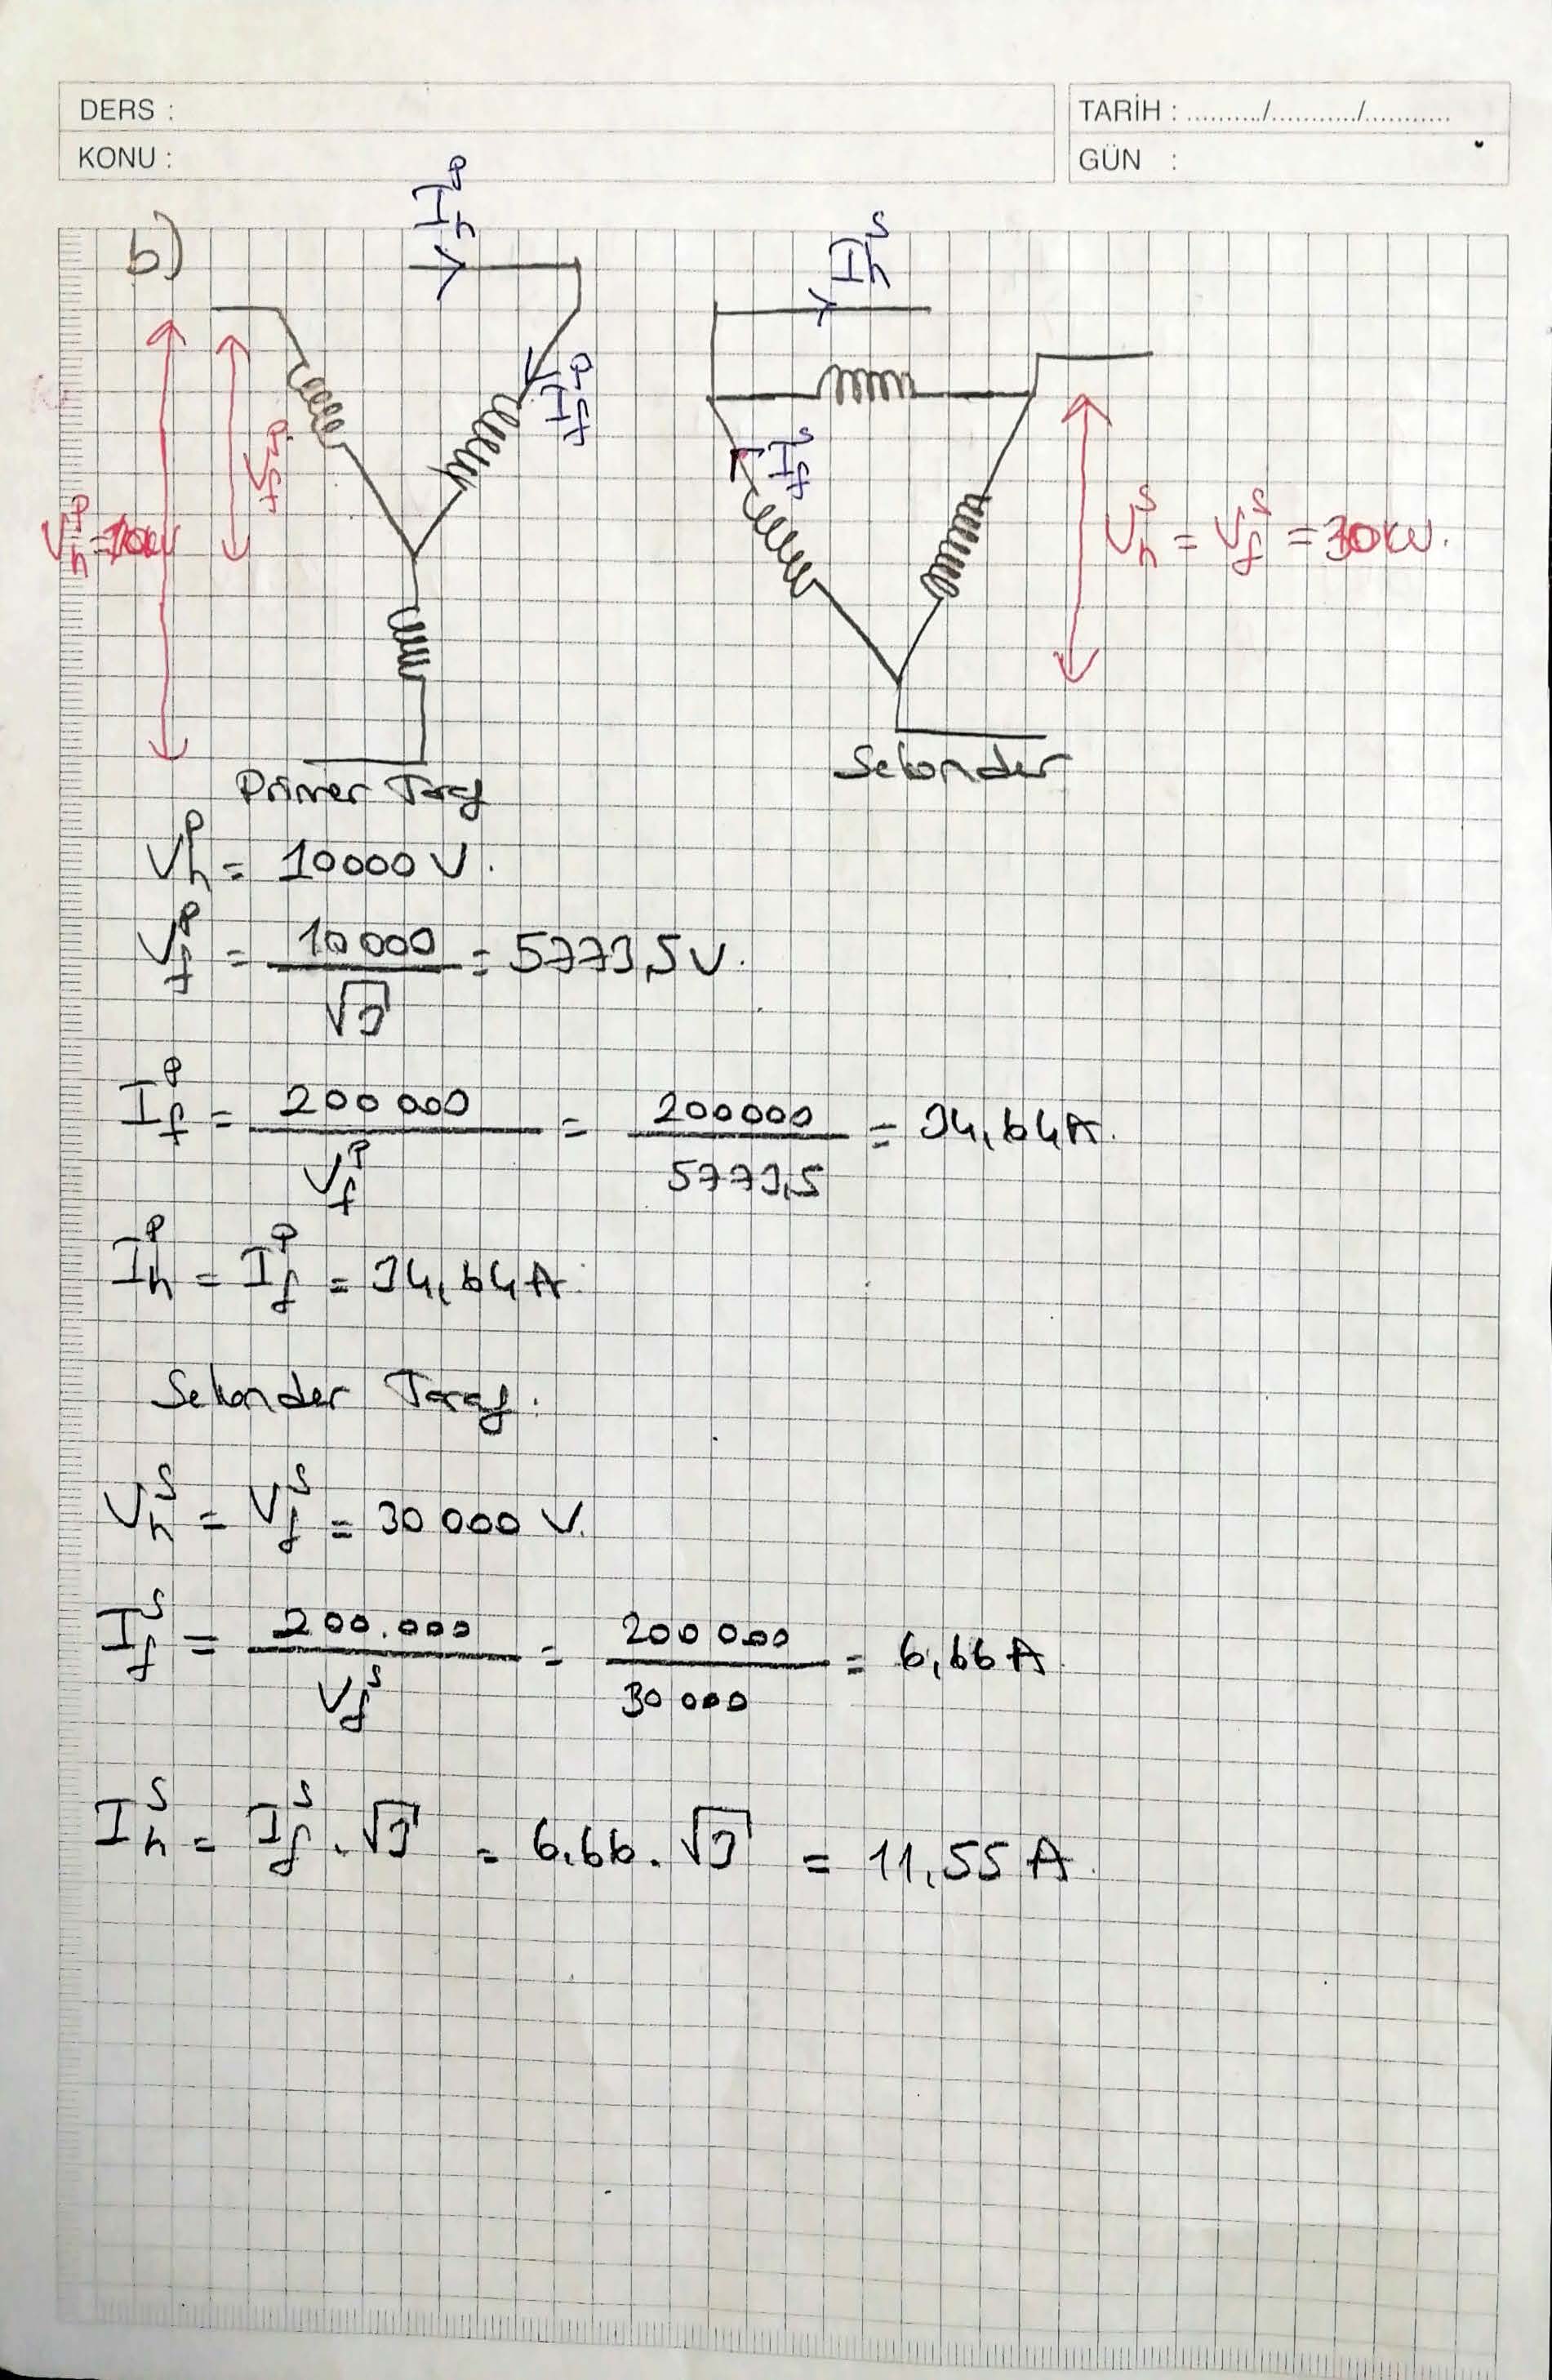 DERS :
KONU :
TARİH : ........../.........../...........
GÜN :
b)
I_h^P
I_f^P
V_f^P
V_h^P = 10kV
Primer Taraf
I_h^S
I_f^S
V_h^S = V_f^S = 30kV.
Sekonder
V_h^P = 10000 V.
V_f^P = 10000 / √3 = 5773,5 V.
I_f^P = 200 000 / V_f^P = 200000 / 5773,5 = 34,64A.
I_h^P = I_f^P = 34,64A.
Sekonder Taraf:
V_h^S = V_f^S = 30 000 V.
I_f^S = 200.000 / V_f^S = 200 000 / 30 000 = 6,66 A.
I_h^S = I_f^S . √3 = 6,66 . √3 = 11,55 A.